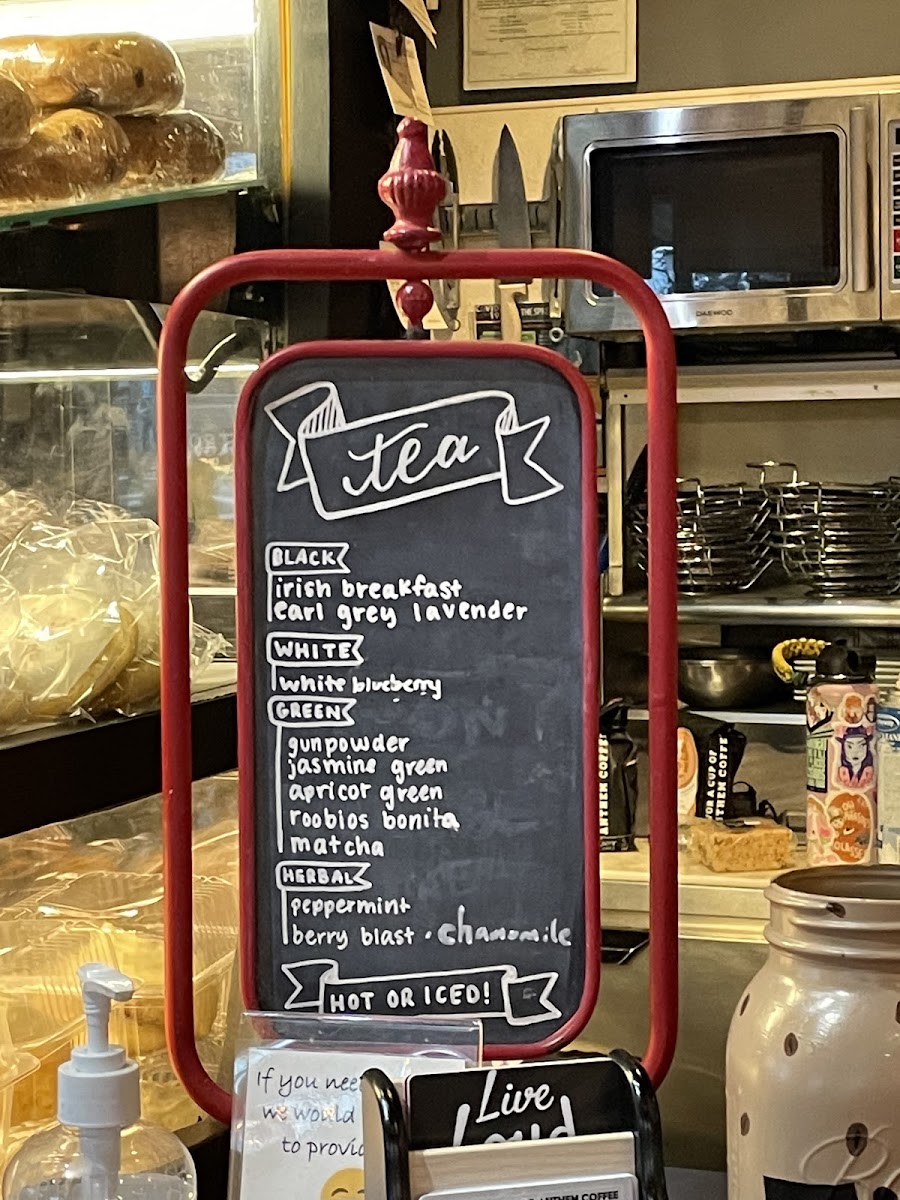 DAEWOO
THE SPI
tea
BLACK
irish breakfast
earl grey lavender
WHITE
white blueberry
GREEN
gunpowder
jasmine green
apricot green
roobios bonita
matcha
HERBAL
peppermint
berry blast • chamomile
HOT OR ICED!
ANTHEM COFFE
FOR A CUP OF
THEM COFFE
If you nee
we would
to provid
Live
Loud
ANTHEM COFFEE